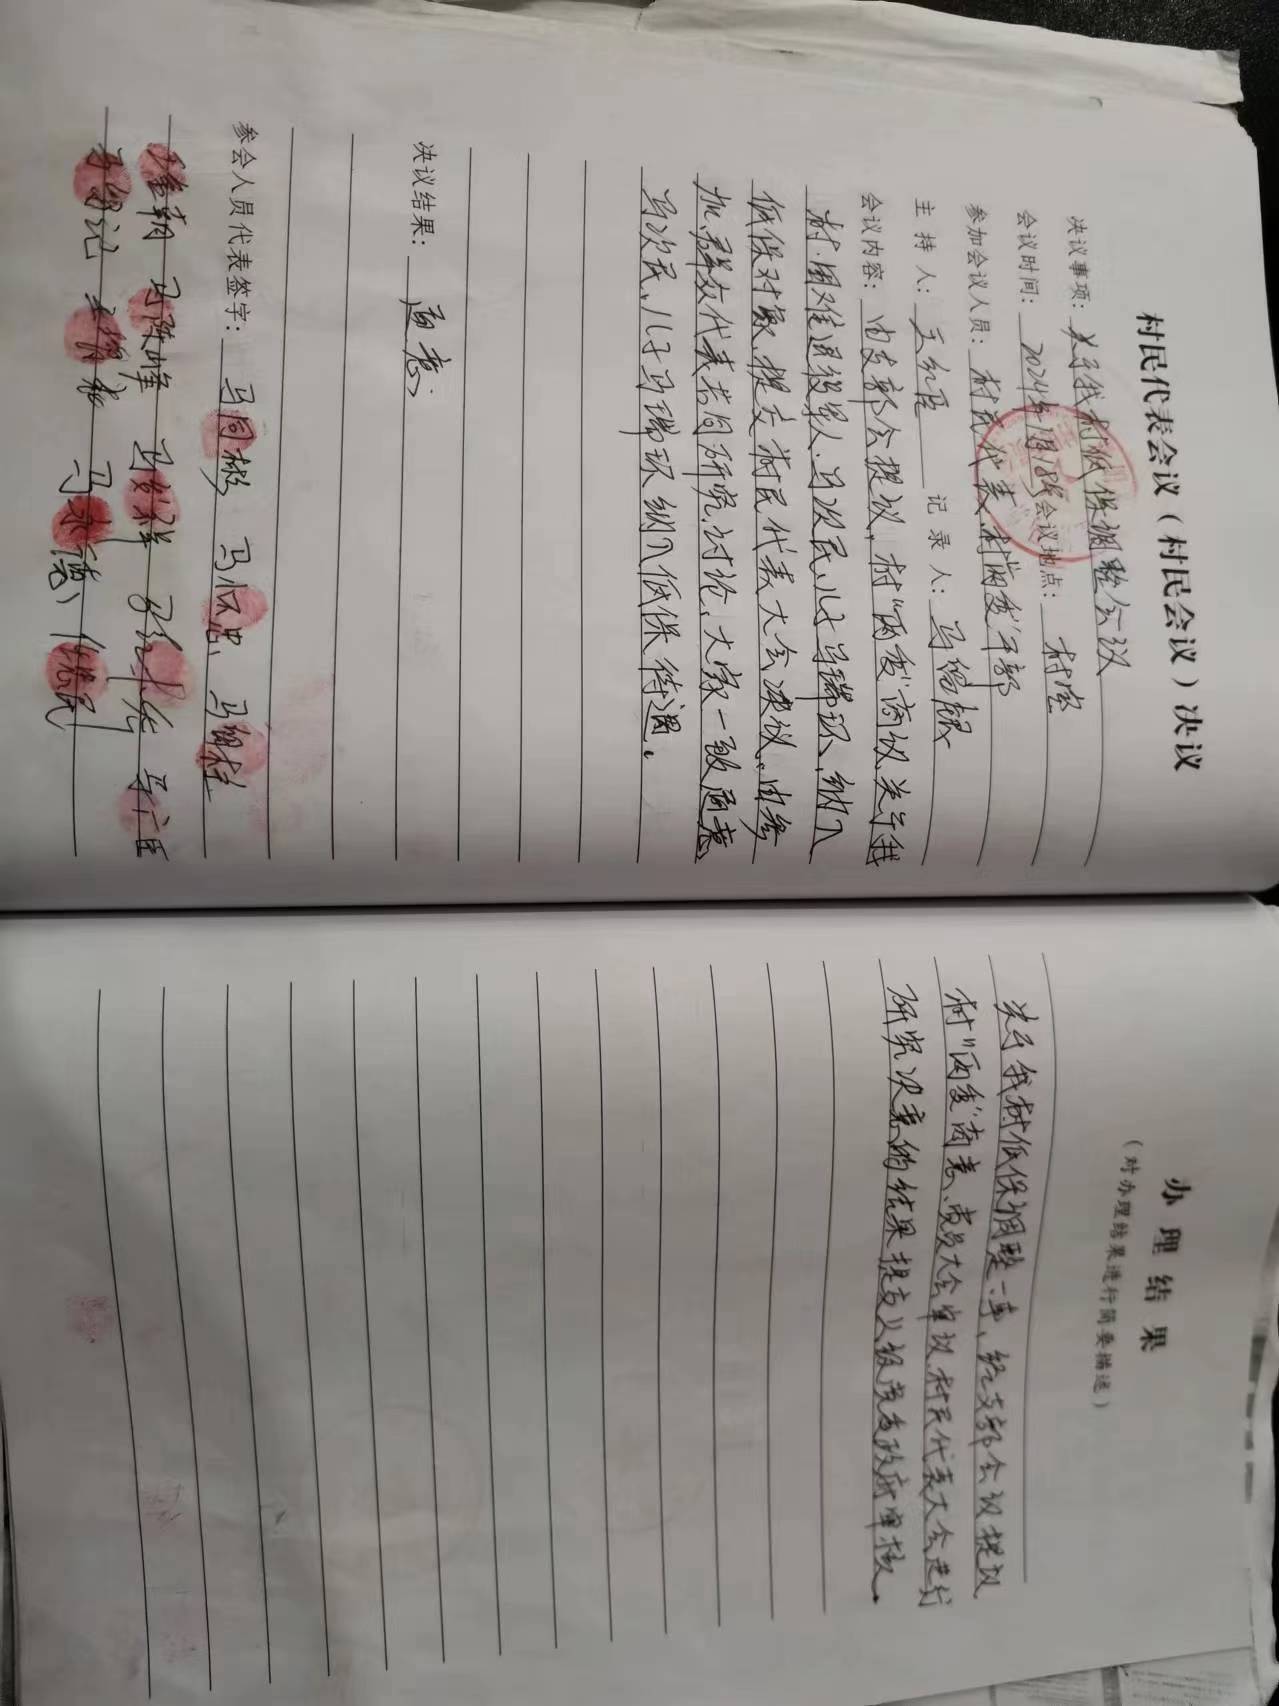 村民代表会议（村民会议）决议
决议事项：关于我村低保调整会议
会议时间：2024年1月8号 会议地点：村室
参加会议人员：村民代表、村"两委"干部
主持人：王 记录人：马
会议内容：由支部会提议，村"两委"商议，关于我
村·困难退役军人马次民，儿子马瑞环，纳入
低保对象，提交村民代表大会决议，由参
加群众代表共同研究讨论，大家一致同意
马次民，儿子马瑞环纳入低保待遇。
决议结果：同意
参会人员代表签字：马同彬 马 忠 马 柱
马 峰 马
马 记 马 民
办理结果
（对办理结果进行简要描述）
关于我村低保调整一事，经支部会议提议
村"两委"商意、党员大会审议、村民代表大会进行
研究决意的结果提交乂级党委政府审核。